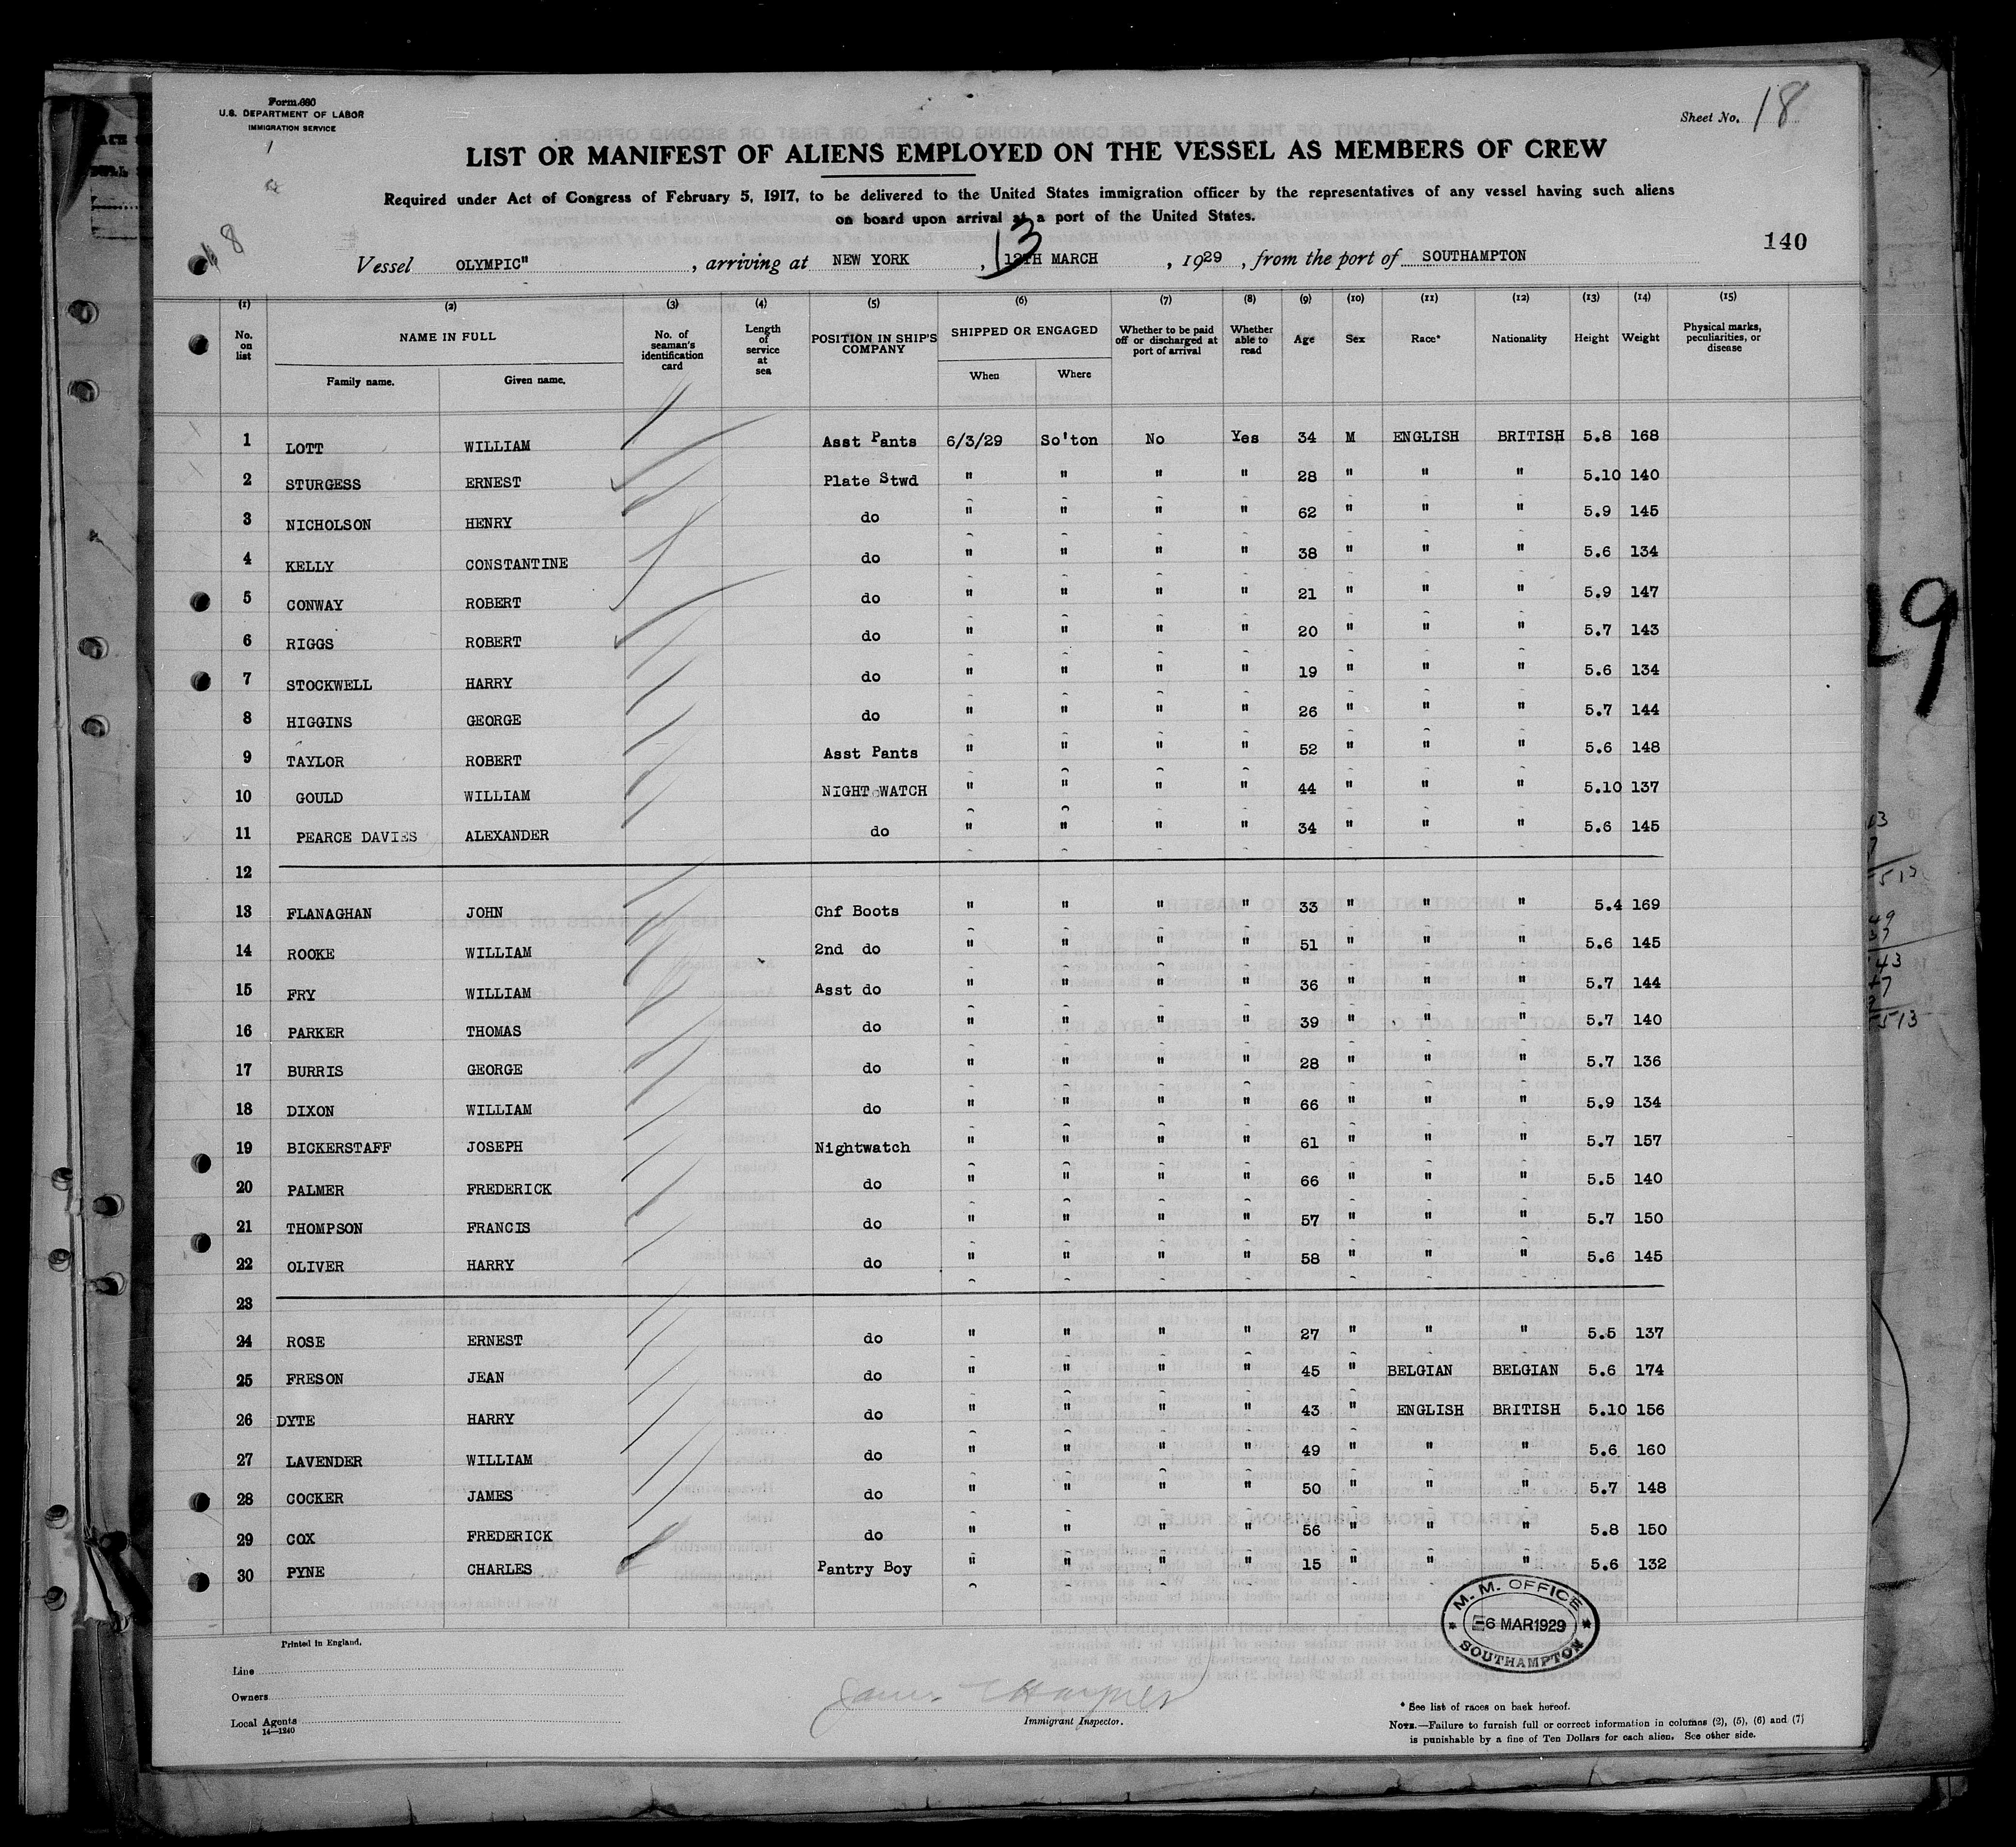 Form 680
U.S. DEPARTMENT OF LABOR
IMMIGRATION SERVICE
Sheet No. 18
LIST OR MANIFEST OF ALIENS EMPLOYED ON THE VESSEL AS MEMBERS OF CREW
Required under Act of Congress of February 5, 1917, to be delivered to the United States immigration officer by the representatives of any vessel having such aliens
on board upon arrival at a port of the United States.
8
140
Vessel OLYMPIC" , arriving at NEW YORK , 13 12TH MARCH , 1929 , from the port of SOUTHAMPTON
(1) (2) (3) (4) (5) (6) (7) (8) (9) (10) (11) (12) (13) (14) (15)
No. on list NAME IN FULL Family name. Given name. No. of seaman's identification card Length of service at sea POSITION IN SHIP'S COMPANY SHIPPED OR ENGAGED When Where Whether to be paid off or discharged at port of arrival Whether able to read Age Sex Race* Nationality Height Weight Physical marks, peculiarities, or disease
1 LOTT WILLIAM Asst Pants 6/3/29 So'ton No Yes 34 M ENGLISH BRITISH 5.8 168
2 STURGESS ERNEST Plate Stwd " " " " 28 " " " 5.10 140
3 NICHOLSON HENRY do " " " " 62 " " " 5.9 145
4 KELLY CONSTANTINE do " " " " 38 " " " 5.6 134
5 CONWAY ROBERT do " " " " 21 " " " 5.9 147
6 RIGGS ROBERT do " " " " 20 " " " 5.7 143
7 STOCKWELL HARRY do " " " " 19 " " " 5.6 134
8 HIGGINS GEORGE do " " " " 26 " " " 5.7 144
9 TAYLOR ROBERT Asst Pants " " " " 52 " " " 5.6 148
10 GOULD WILLIAM NIGHT WATCH " " " " 44 " " " 5.10 137
11 PEARCE DAVIES ALEXANDER do " " " " 34 " " " 5.6 145
12
13 FLANAGHAN JOHN Chf Boots " " " " 33 " " " 5.4 169
14 ROOKE WILLIAM 2nd do " " " " 51 " " " 5.6 145
15 FRY WILLIAM Asst do " " " " 36 " " " 5.7 144
16 PARKER THOMAS do " " " " 39 " " " 5.7 140
17 BURRIS GEORGE do " " " " 28 " " " 5.7 136
18 DIXON WILLIAM do " " " " 66 " " " 5.9 134
19 BICKERSTAFF JOSEPH Nightwatch " " " " 61 " " " 5.7 157
20 PALMER FREDERICK do " " " " 66 " " " 5.5 140
21 THOMPSON FRANCIS do " " " " 57 " " " 5.7 150
22 OLIVER HARRY do " " " " 58 " " " 5.6 145
23
24 ROSE ERNEST do " " " " 27 " " " 5.5 137
25 FRESON JEAN do " " " " 45 " BELGIAN BELGIAN 5.6 174
26 DYTE HARRY do " " " " 43 " ENGLISH BRITISH 5.10 156
27 LAVENDER WILLIAM do " " " " 49 " " " 5.6 160
28 COCKER JAMES do " " " " 50 " " " 5.7 148
29 COX FREDERICK do " " " " 56 " " " 5.8 150
30 PYNE CHARLES Pantry Boy " " " " 15 " " " 5.6 132
M. M. OFFICE
6 MAR 1929
SOUTHAMPTON
Printed in England.
Line
Owners
Local Agents
14—1240
Immigrant Inspector.
* See list of races on back hereof.
NOTE.—Failure to furnish full or correct information in columns (2), (5), (6) and (7)
is punishable by a fine of Ten Dollars for each alien. See other side.